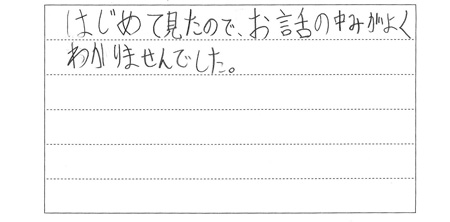 はじめて見たので、お話の中みがよく
わかりませんでした。